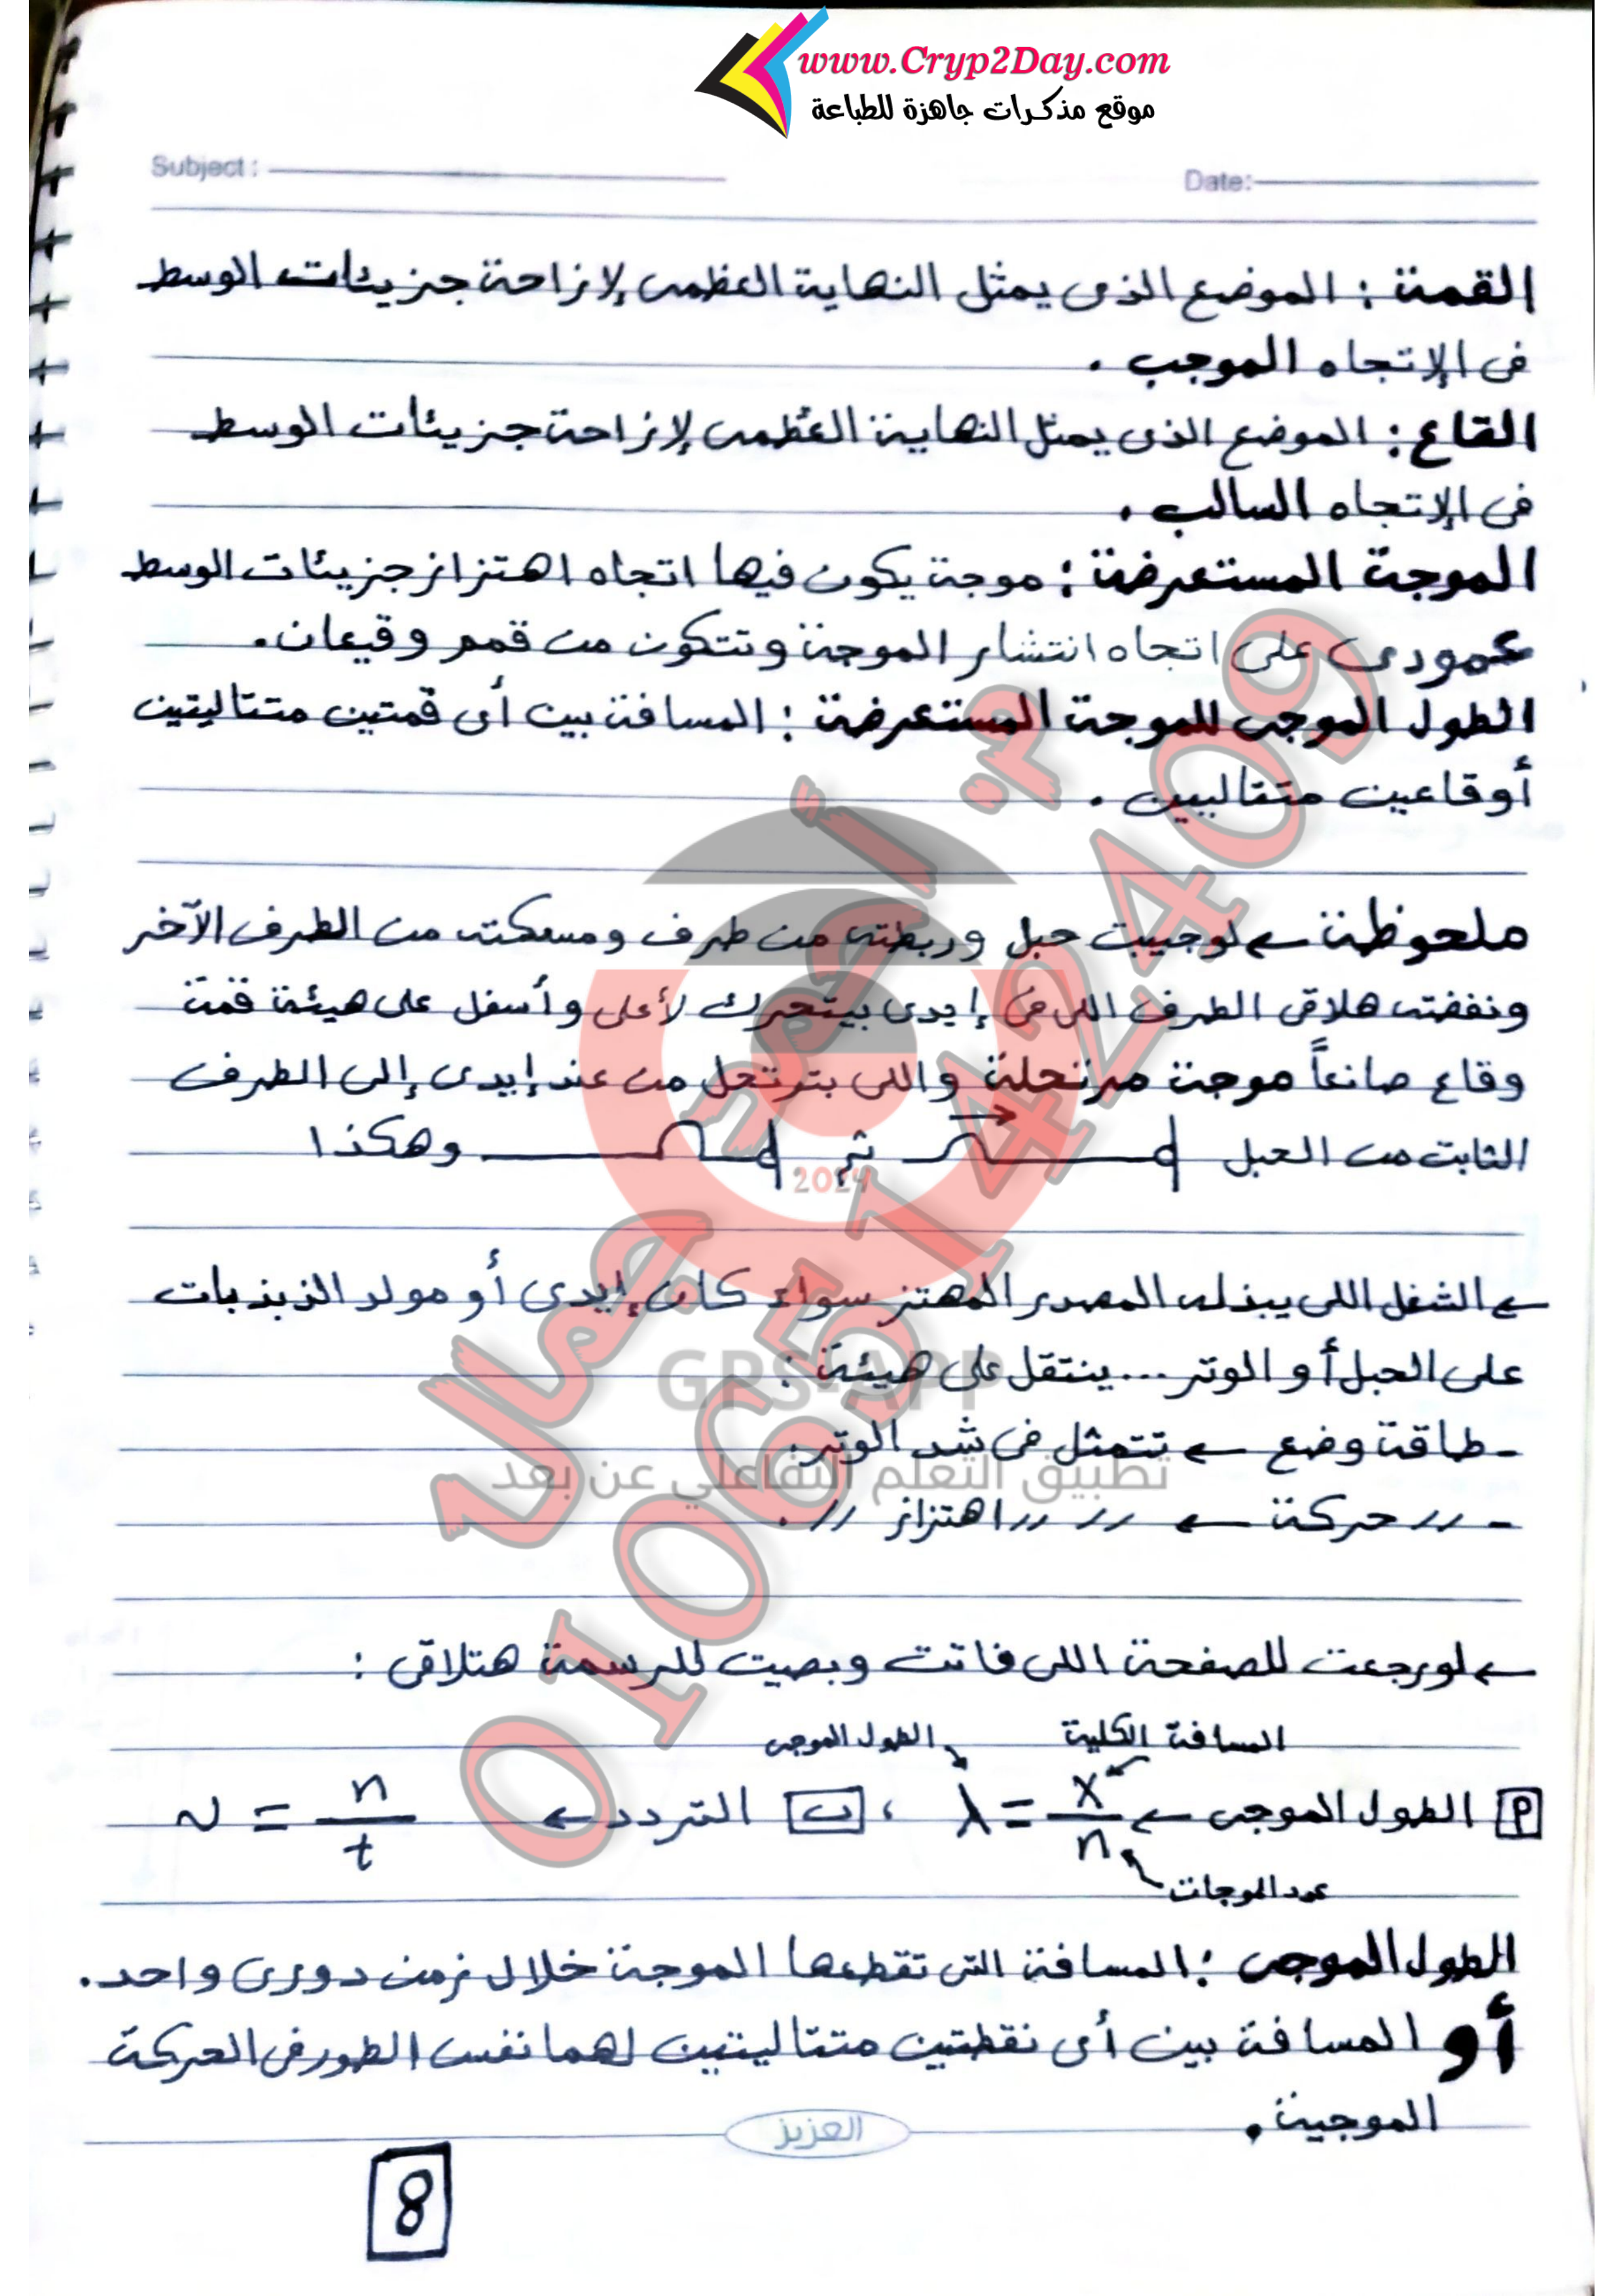 www.Cryp2Day.com
موقع مذكرات جاهزة للطباعة
Subject: Date:
القمة : الموضع الذى يمثل النهاية العظمى لإزاحة جزيئات الوسط
فى الإتجاه الموجب .
القاع : الموضع الذى يمثل النهاية العُظمى لإزاحة جزيئات الوسط
فى الإتجاه السالب .
الموجة المستعرضة : موجة يكون فيها اتجاه اهتزاز جزيئات الوسط
عمودى على اتجاه انتشار الموجة وتتكون من قمم وقيعان .
الطول الموجى للموجة المستعرضة : المسافة بين أى قمتين متتاليتين
أوقاعين متتاليين .
ملحوظة ← لوجيبت حبل وربطته من طرف ومسكته من الطرف الآخر
ونفضته هلاقى الطرف اللى فى إيدى بيتحرك لأعلى وأسفل على هيئة قمة
وقاع صانعاً موجة مرتحلة واللى بترتحل من عند إيدى إلى الطرف
الثابت من الحبل ثم وهكذا
2024
← الشغل اللى يبذله المصدر المهتز سواء كان إيدى أو مولد الذبذبات
على الحبل أو الوتر ... ينتقل على هيئة :
GPS-APP
- طاقة وضع ← تتمثل فى شد الوتر .
تطبيق التعلم التفاعلي عن بعد
- // حركة ← // // اهتزاز // .
← لورجعت للصفحة اللى فاتت وبصيت للرسمة هتلاقى :
المسافة الكلية الطول الموجى
P الطول الموجى ← λ = x/n ، ب التردد ← ν = n/t
عدد الموجات
الطول الموجى : المسافة التى تقطعها الموجة خلال زمن دورى واحد .
أو المسافة بين أى نقطتين متتاليتين لهما نفس الطور فى الحركة
الموجية .
العزيز
8
01065142409